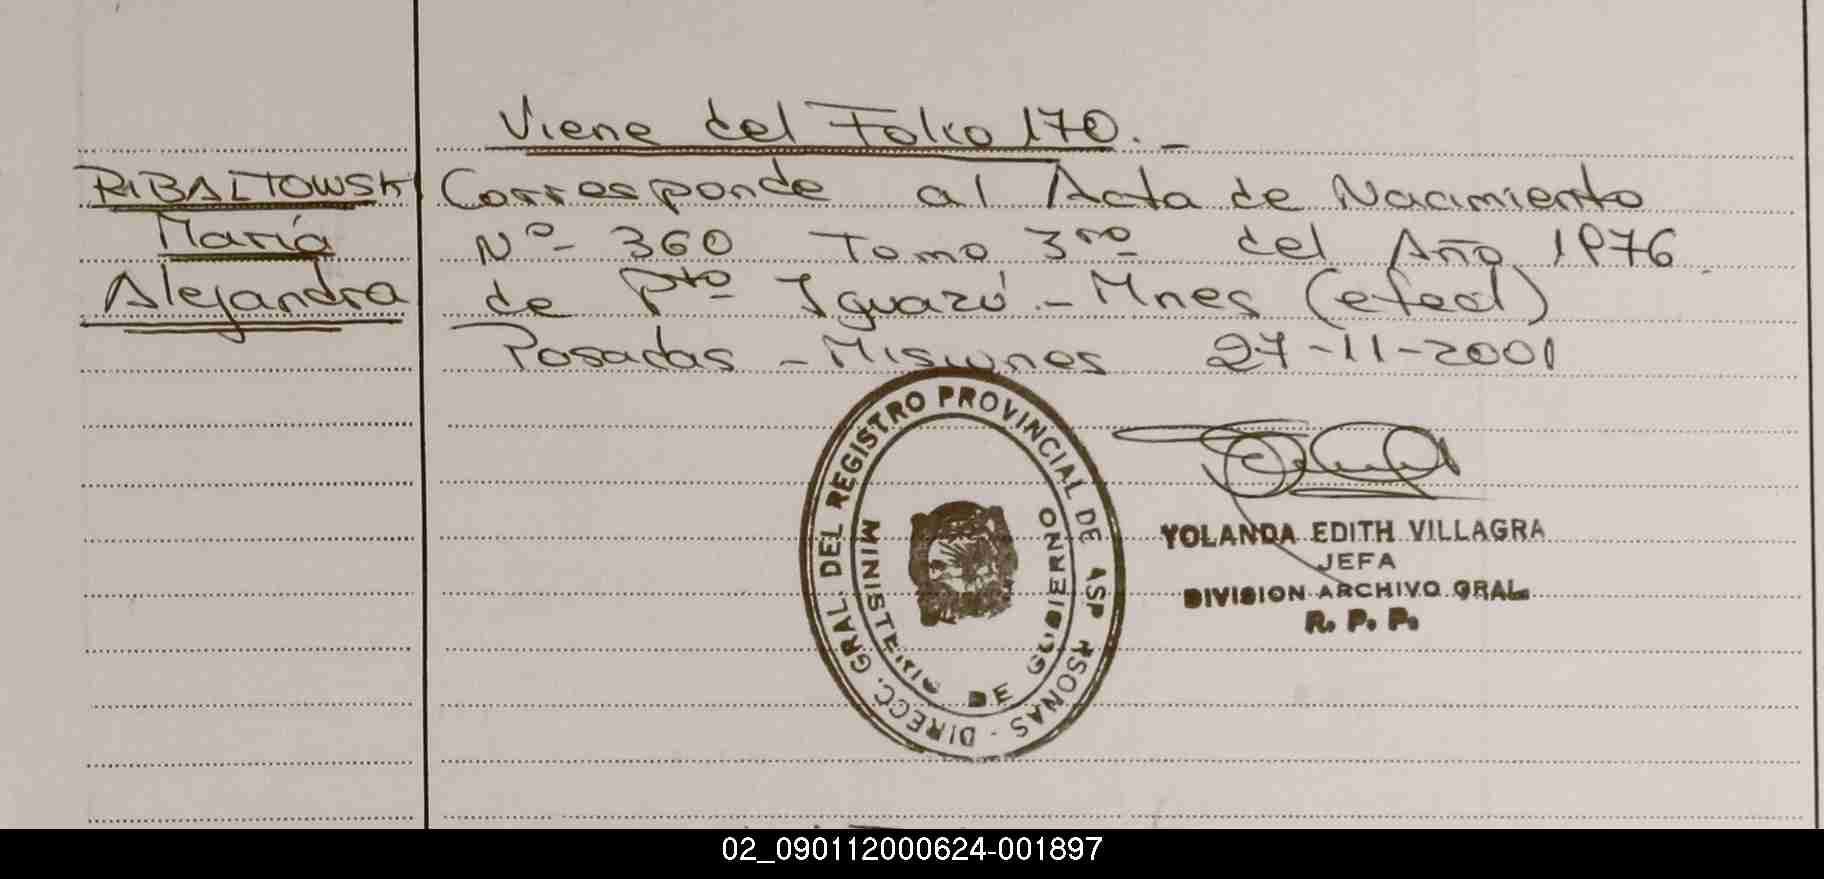 Viene del Folio 170.-
RIBALTOWSKI
María
Alejandra
Corresponde al Acta de Nacimiento
Nº- 360 Tomo 3ro del Año 1976
de Pto Iguazú.- Mnes (efect)
Posadas - Misiones 27-11-2001
DIRECC. GRAL. DEL REGISTRO PROVINCIAL DE ASP RSONAS -
MINISTERIO DE GOBIERNO
YOLANDA EDITH VILLAGRA
JEFA
DIVISION ARCHIVO GRAL.
R. P. P.
02_090112000624-001897